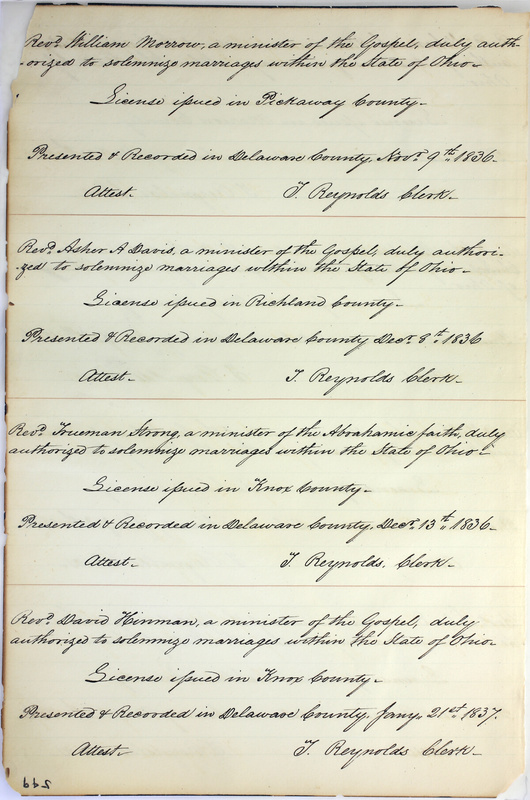 Revd. William Morrow, a minister of the Gospel, duly auth-
-orized to solemnize marriages within the State of Ohio-
License issued in Pickaway County-
Presented & Recorded in Delaware County, Novr. 9th. 1836-
Attest- T. Reynolds Clerk-
Revd. Asher A Davis, a minister of the Gospel, duly authori-
-zed to solemnize marriages within the State of Ohio-
License issued in Richland County-
Presented & Recorded in Delaware County Decr. 8th. 1836
Attest- T. Reynolds Clerk-
Revd. Trueman Strong, a minister of the Abrahamic faith, duly
authorized to solemnize marriages within the State of Ohio-
License issued in Knox County-
Presented & Recorded in Delaware County, Decr. 13th. 1836-
Attest- T. Reynolds, Clerk-
Revd. David Hinman, a minister of the Gospel, duly
authorized to solemnize marriages within the State of Ohio-
License issued in Knox County-
Presented & Recorded in Delaware County, Jany. 21st. 1837.
Attest- T. Reynolds Clerk-